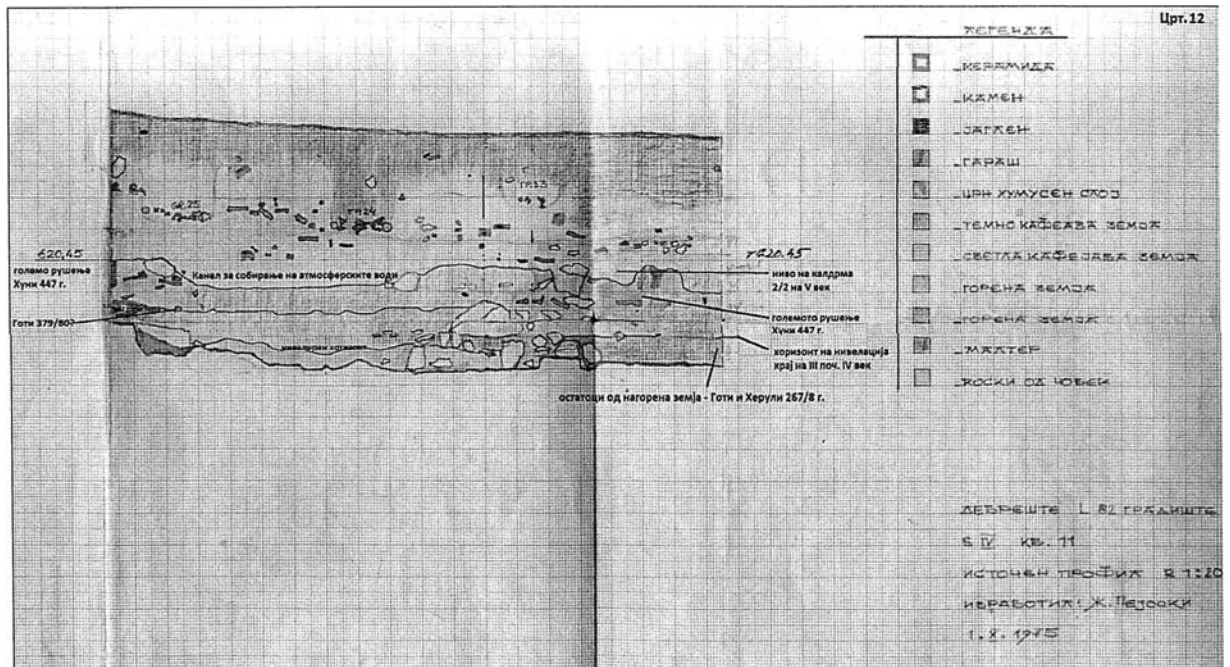 Црт.12
ЛЕГЕНДА
КЕРАМИДА
КАМЕН
ЈАГЛЕН
ГАРАШ
ЦРН ХУМУСЕН СЛОЈ
ТЕМНО КАФЕАВА ЗЕМЈА
СВЕТЛА КАФЕЈАВА ЗЕМЈА
ГОРЕНА ЗЕМЈА
ГОРЕНА ЗЕМЈА
МАЛТЕР
КОСКИ ОД ЧОВЕК
ГР.25
ГР.24
ГР.13
620,45
големо рушење
Хуни 447 г.
Готи 379/80?
Канал за собирање на атмосферските води
нивелиран хоризонт
620.45
ниво на калдрма
2/2 на V век
големото рушење
Хуни 447 г.
хоризонт на нивелација
крај на III поч. IV век
остатоци од нагорена земја - Готи и Херули 267/8 г.
ДЕБРЕШТЕ L 82 ГРАДИШТЕ
S IV КВ. 11
ИСТОЧЕН ПРОФИЛ R 1:20
ИЗРАБОТИЛ: Ж. Пејоски